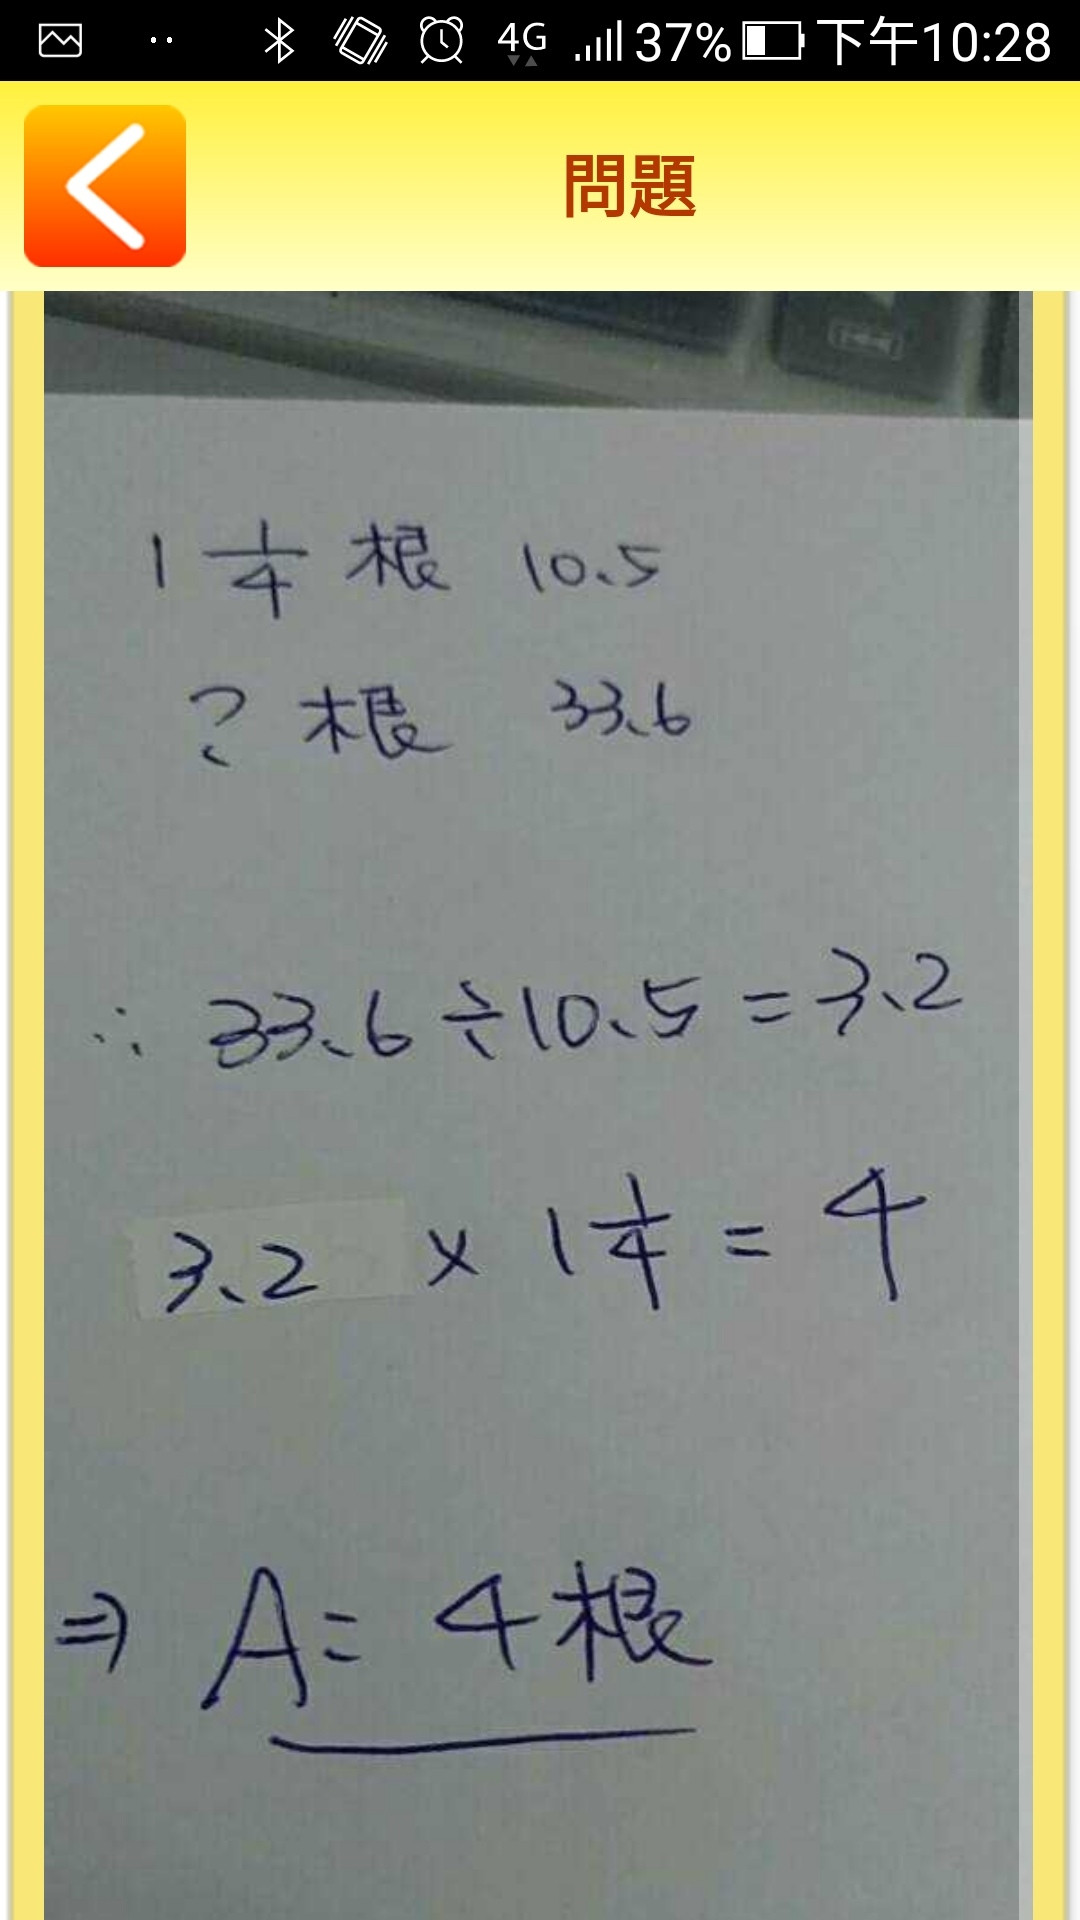 4G 37% 下午10:28
問題
1 1/4 根 10.5
? 根 33.6
∴ 33.6 ÷ 10.5 = 3.2
3.2 × 1 1/4 = 4
⇒ A = 4根